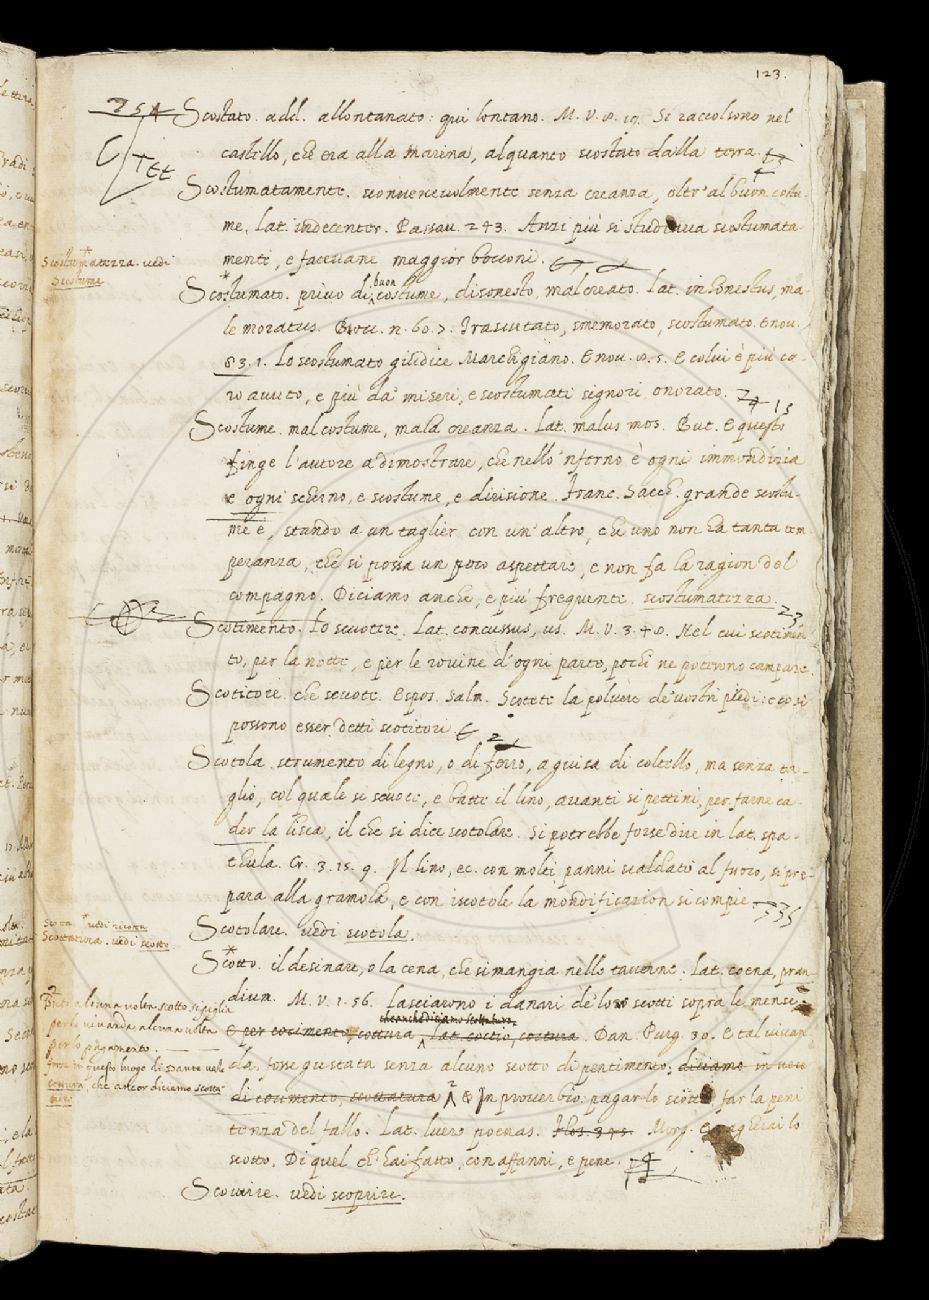 123.
Scostato. add. allontanato: qui lontano. M. V. 8. 19. Si raccolsono nel
castello, che era alla marina, alquanto scostato dalla terra.
Scostumatamente. sconvenevolmente senza creanza, oltr' al buon costu-
me. Lat. indecenter. Passau. 243. Anzi più si studiava scostumata-
mente, e facevane maggior bocconi.
Scostumatezza. vedi
Scostume
Scostumato. privo di buon costume, disonesto, malcreato. Lat. inhonestus, ma-
le moratus. Bocc. n. 60. 7. Trascutato, smemorato, scostumato. E nov.
83. 1. Lo scostumato giudice Marchigiano. E nov. 8. 5. E colui è più ca-
ro avuto, e più da' miseri, e scostumati signori onorato.
Scostume. mal costume, mala creanza. Lat. malus mos. But. E questo
finge l'autore a dimostrare, che nello 'nferno è ogni immondizia
e ogni scherno, e scostume, e divisione. Franc. Sacch. grande scostu-
me è, stando a un taglier con un' altro, che uno non ha tanta tem-
peranza, che si possa un poco aspettare, e non fa la ragion del
compagno. Diciamo anche, e più frequente. scostumatezza.
Scotimento. Lo scuotere. Lat. concussus, us. M. V. 3. 48. Nel cui scotimen-
to, per la notte, e per le rovine d'ogni parte, pochi ne poterono campare.
Scotitore. che scuote. Espos. Salm. Scotete la polvere de' vostri piedi: e così
possono esser detti scotitori
Scotola. strumento di legno, o di ferro, a guisa di coltello, ma senza ta-
glio, col quale si scuote, e batte il lino, avanti si pettini, per farne ca-
der la lisca, il che si dice scotolare. Si potrebbe forse dire in lat. spa-
thula. Cr. 3. 15. 9. Il lino, ec. con molti panni scaldato al fuoco, si pre-
para alla gramola, e con iscotole la mondificazion si compie
Scotolare. vedi scotola.
Scotta vedi ricotta
Scottatura. vedi scotto
Scotto. il desinare, o la cena, che si mangia nelle taverne. Lat. coena, pran-
dium. M. V. 1. 56. Lasciarono i danari de' loro scotti sopra le mense
che anche diciamo scottatura,
e per cocimento, cottura, Lat. coctio, coctura. Dan. Purg. 30. E tal vivan-
da, fosse gustata senza alcuno scotto di pentimento, diciamo in
di cocimento, scottatura E In proverbio: pagar lo scotto far la peni-
tenza del fallo. Lat. luere poenas. Morg. E pagherai lo
scotto, Di quel ch' hai fatto, con affanni, e pene.
alcuna volta scotto si piglia
per la vivanda alcuna volta
per lo pagamento.
forse in questo luogo di Dante vale
che ancor diciamo scotta
Scovrire. vedi scoprire.